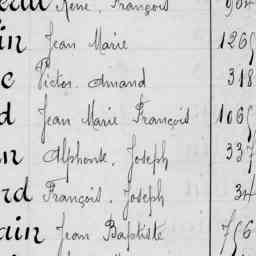 René, François 904
in Jean Marie 126
c Victor, Amand 318
d Jean Marie François 106
n Alphonse, Joseph 337
rd François, Joseph 34
ain Jean Baptiste 756